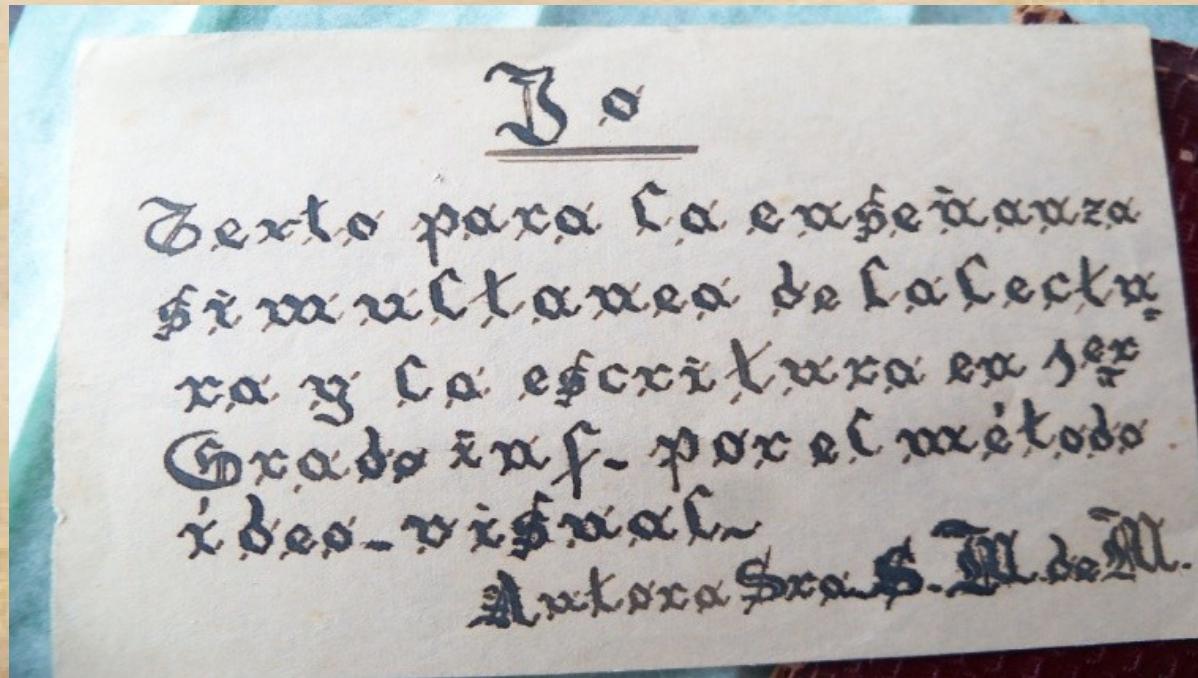 Yo
Texto para la enseñanza
simultanea de la lectu=
ra y la escritura en 1er
Grado inf- por el método
ídeo-visual-
Autora Sra. S. M. de M.